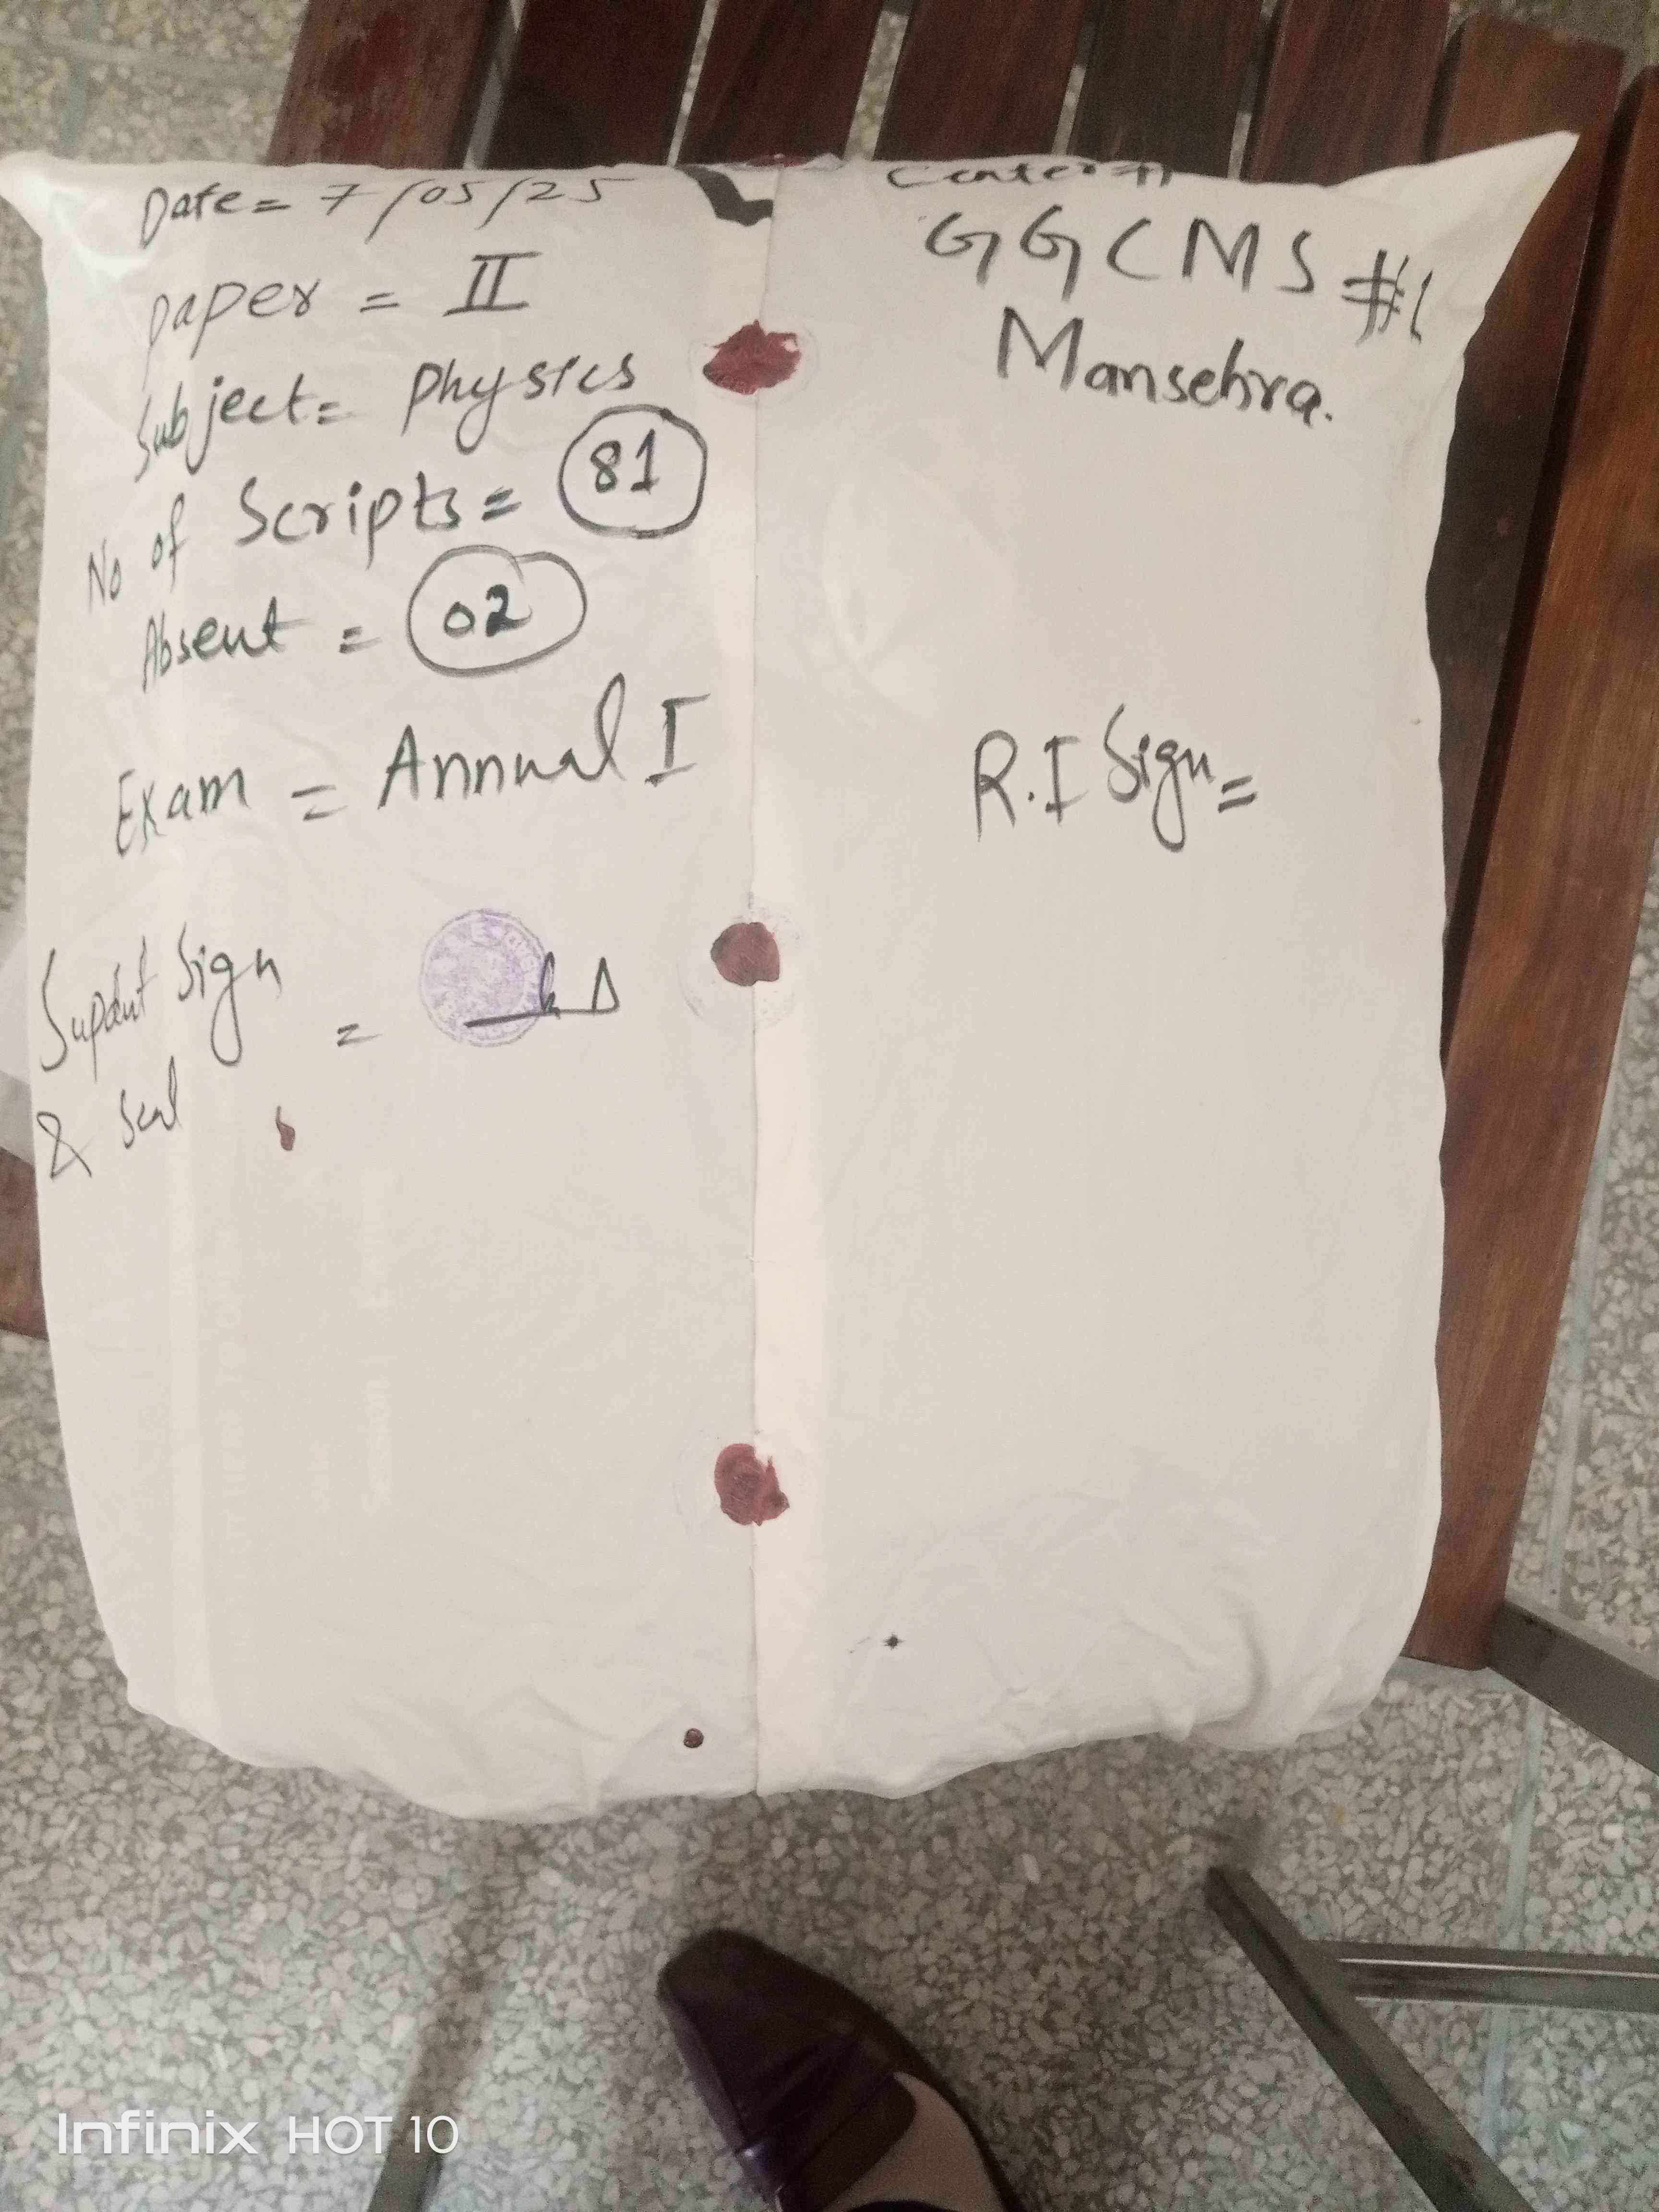 Date = 7/05/25
paper = II
Subject = Physics
No of Scripts = 81
Absent = 02
Exam = Annual I
Supdnt Sign
& Seal =
Center #
GGCMS #1
Mansehra.
R.I Sign =
Infinix HOT 10